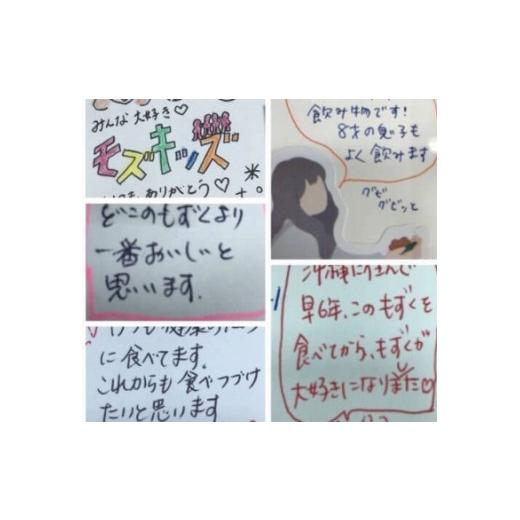 みんな大好き♡
モズキッズ
ありがとう♡
どこのもずくより
一番おいしいと
思います。
に食べてます。
これからも食べつづけ
たいと思います
飲み物です!
8才の息子も
よく飲みます
グビ
グビッと
沖縄に住んで
早6年、このもずくを
食べてから、もずくが
大好きになりました♡